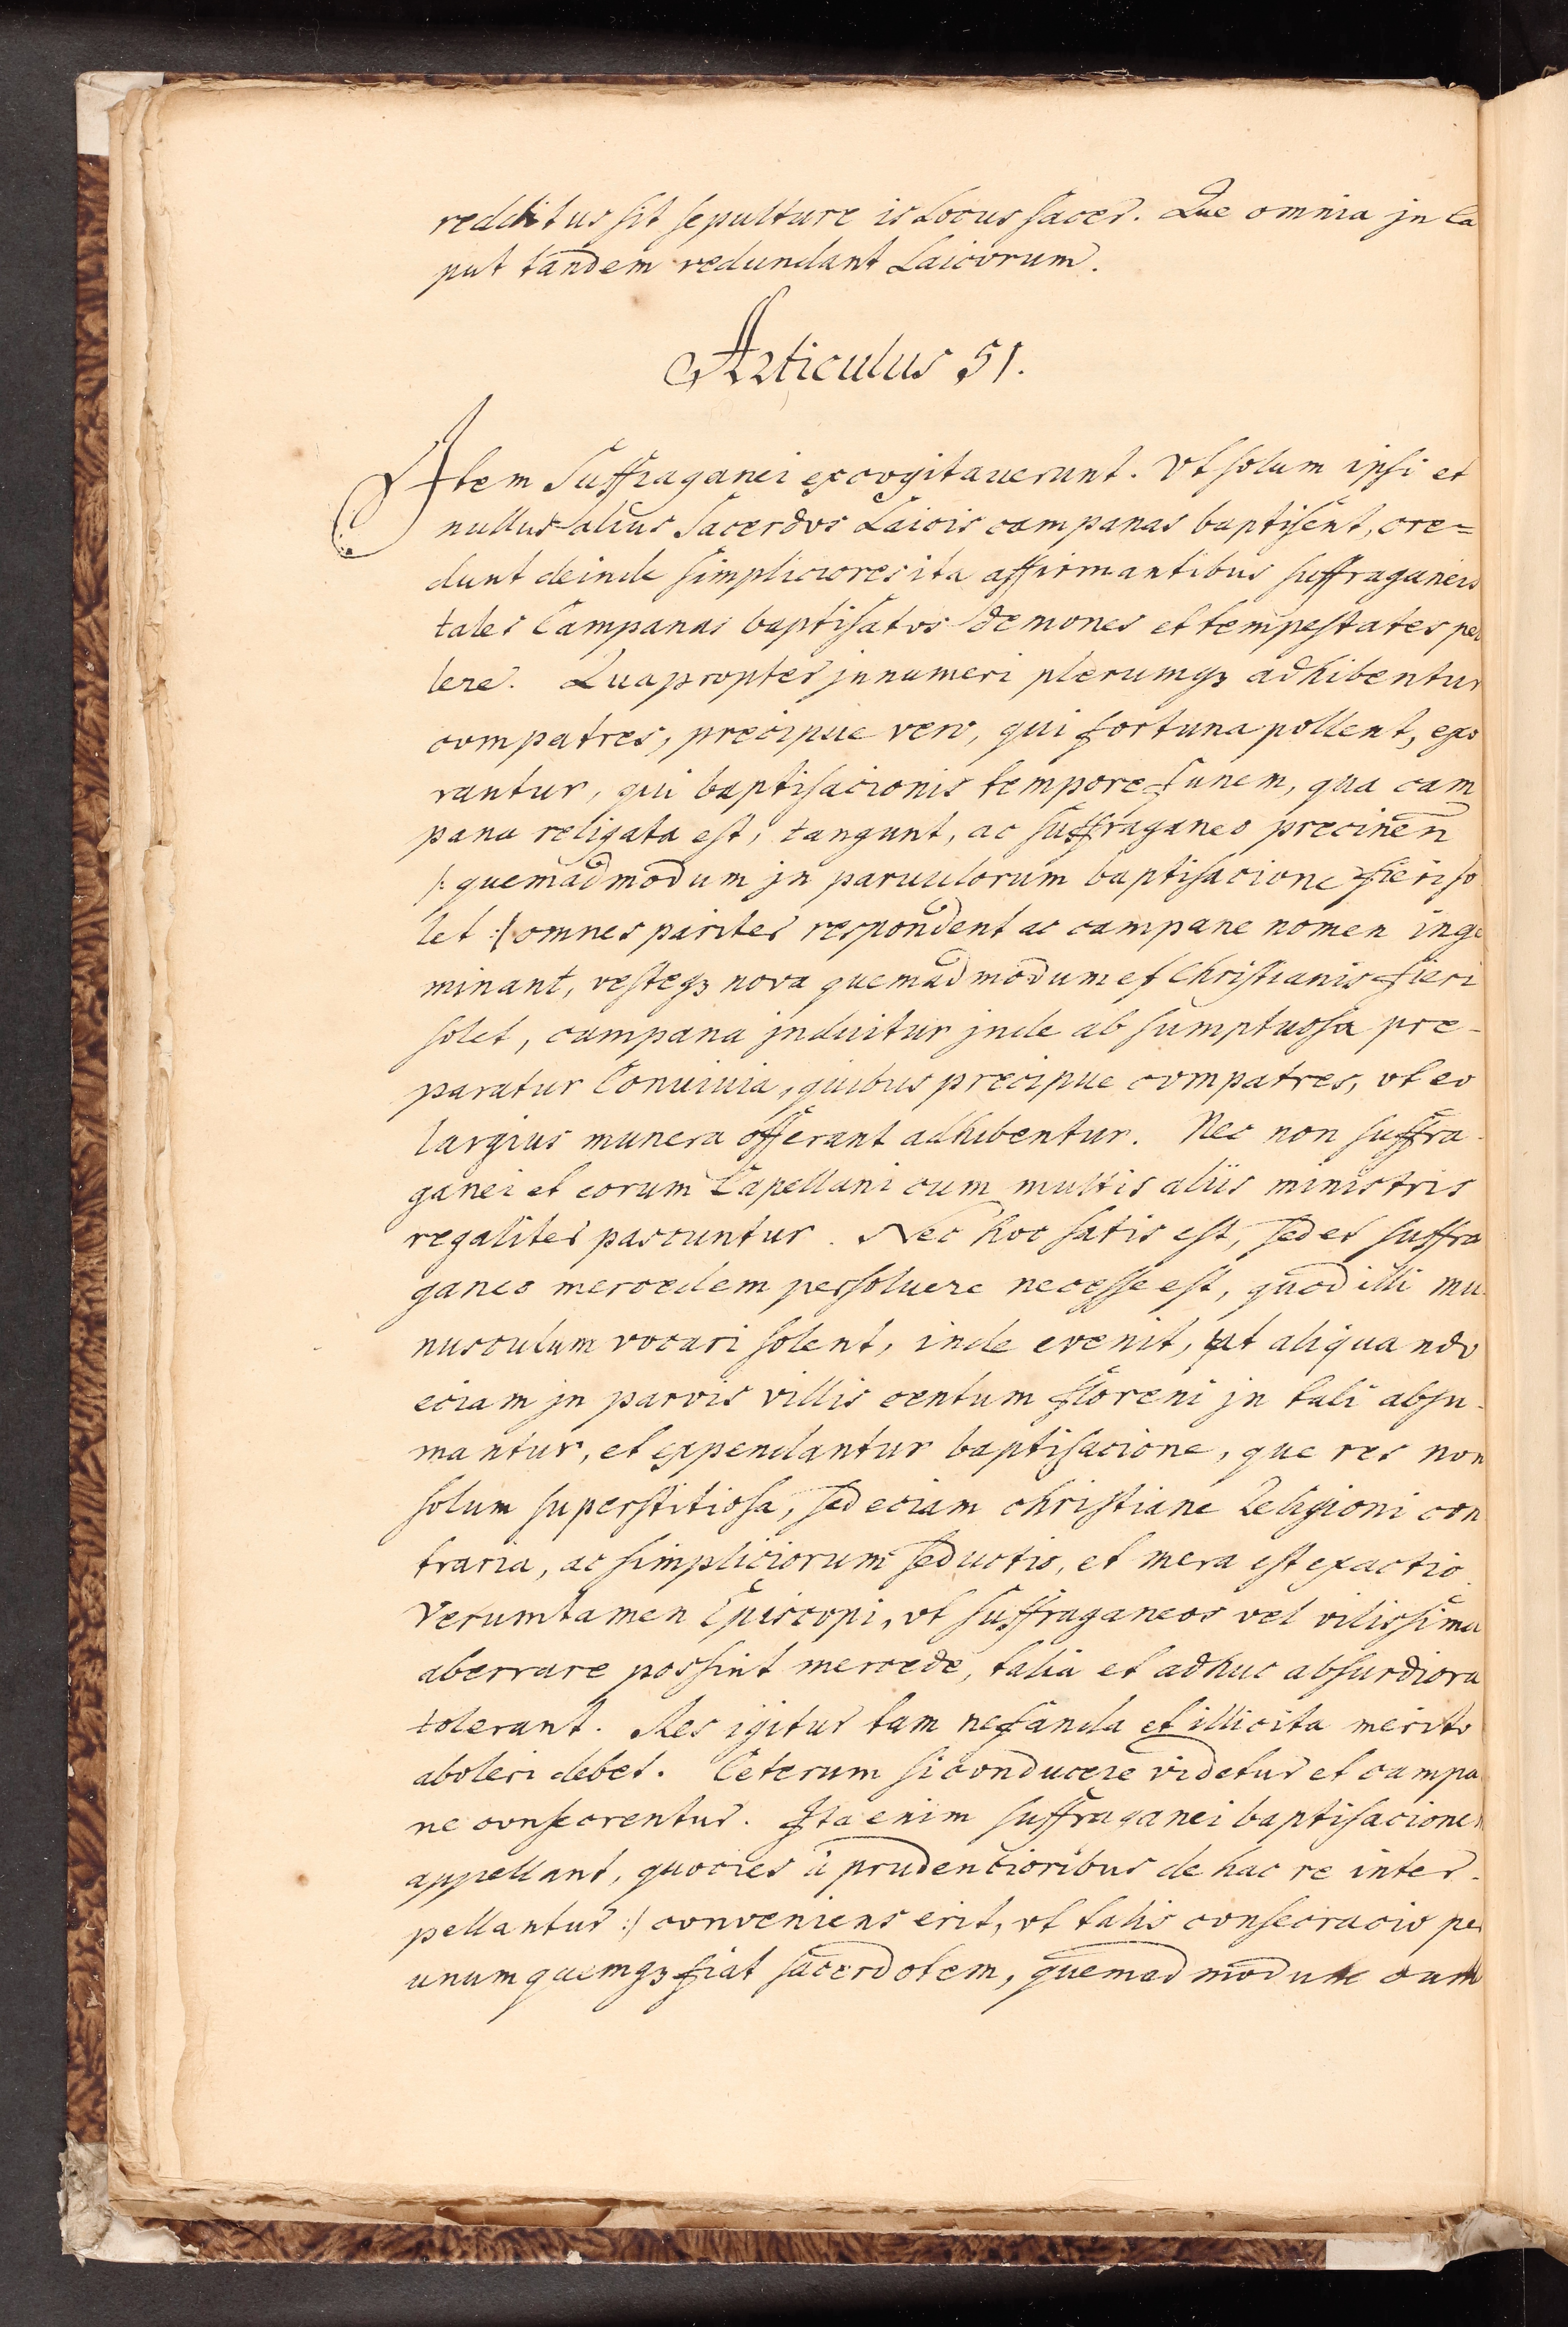 redditus sit sepulture is Locus sacer. Que omnia jn ca
put tandem redundant Laicorum.
Articulus 51.
Item Suffraganei excogitauerunt. Vt solum ipsi et
nullus alius Sacerdos Laicis campanas baptisent, cre=
dunt deinde simpliciores ita affirmantibus suffraganeis
tales Campanas baptisatos demones et tempestates pel
lere. Quapropter jnnumeri plerumqz adhibentur
compatres, precipue vero, qui fortuna pollent, exo
rantur, qui baptisacionis tempore funem, qua cam
pana religata est, tangunt, ac suffraganeo precinen
/: quemadmodum jn paruulorum baptisacione fieri so
let :/ omnes pariter respondent ac campane nomen inge
minant, vesteqz nova quemadmodum et Christianis fieri
solet, campana jnduitur jnde ab sumptuosa pre-
paratur Conuiuia, quibus precipue compatres, vt eo
largius munera offerant adhibentur. Nec non suffra-
ganei et eorum Capellani cum multis aliis ministris
regaliter pascuntur. Nec hoc satis est, sed et suffra
ganeo mercedem persoluere necesse est, quod illi mu-
nusculum vocari solent, inde evenit, ut aliquando
eciam jn parvis villis centum floreni jn tali absu-
mantur, et expendantur baptisacione, que res non
solum superstitiosa, sed eciam christiane Religioni con
traria, ac simpliciorum seductio, et mera est exactio
Verumtamen Episcopi, vt suffraganeos vel vilissima
aberrare possint mercede, talia et adhuc absurdiora
tolerant. Res igitur tam nefanda et illicita merito
aboleri debet. Ceterum si conducere videtur et campa
ne consecrentur. Ita enim suffraganei baptisacionem
appellant, quocies à prudencioribus de hac re inter-
pellantur :/ conveniens erit, vt talis consecracio per
unumquemqz fiat sacerdotem, quemadmodum cum